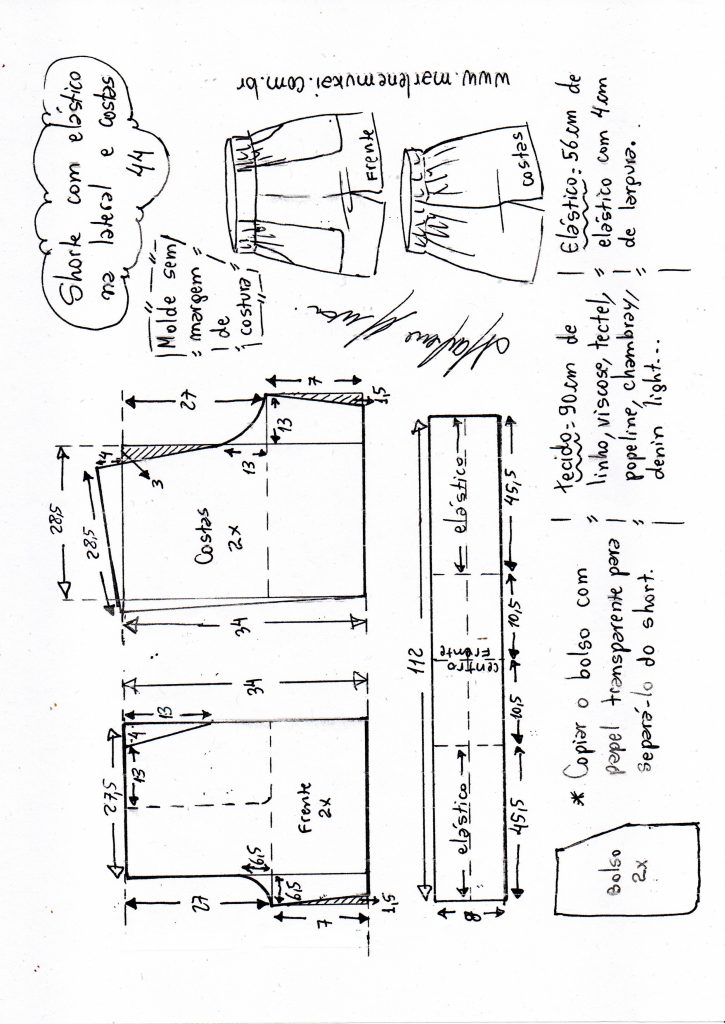 Shorte com elástico
na lateral e costas
44
Molde sem
margem
de
costura
www.marlenemukai.com.br
Frente
costas
27,5
13
4
13
34
27
6,5
6,5
7
1,5
Frente
2x
28,5
28,5
4
3
27
13
13
7
1,5
34
Costas
2x
112
elástico
centro
frente
elástico
45,5
10,5
10,5
45,5
8
Bolso
2x
* Copiar o bolso com
papel transparente para
separá-lo do short.
tecido= 90.cm de
linho, viscose, tectel,
popeline, chambray,
denin light...
Elástico= 56.cm de
elástico com 4.cm
de largura.